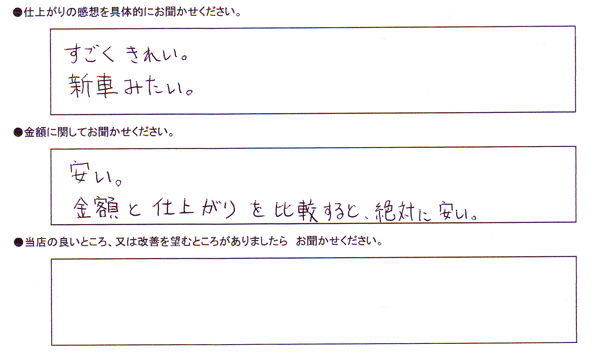 ●仕上がりの感想を具体的にお聞かせください。
すごくきれい。
新車みたい。
●金額に関してお聞かせください。
安い。
金額と仕上がりを比較すると、絶対に安い。
●当店の良いところ、又は改善を望むところがありましたら お聞かせください。